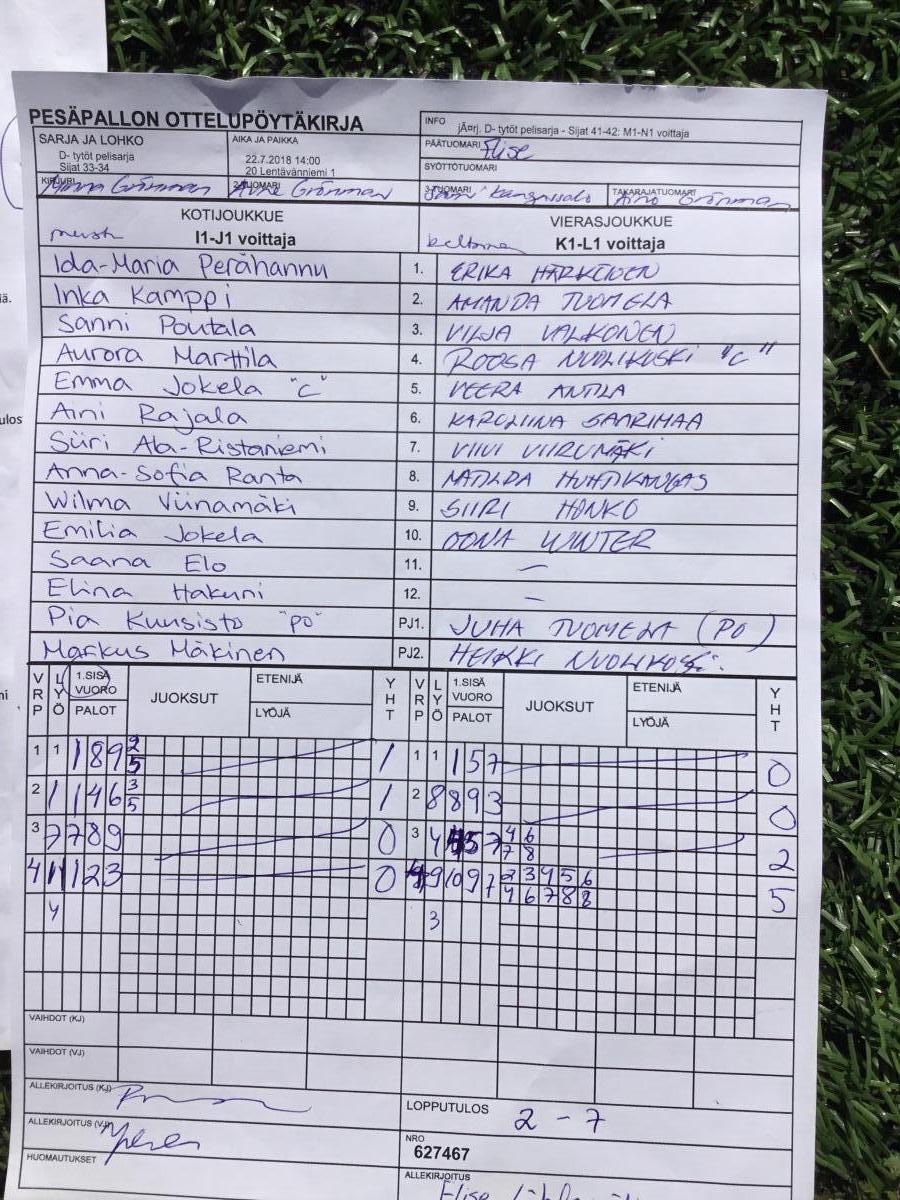 PESÄPALLON OTTELUPÖYTÄKIRJA
INFO jÃ¤rj. D- tytöt pelisarja - Sijat 41-42: M1-N1 voittaja
SARJA JA LOHKO
D- tytöt pelisarja
Sijat 33-34
AIKA JA PAIKKA
22.7.2018 14:00
20 Lentävänniemi 1
PÄÄTUOMARI Elise
SYÖTTÖTUOMARI
KIRJURI Grönman
2-TUOMARI Aino Grönman
3-TUOMARI
TAKARAJATUOMARI Aino Grönman
KOTIJOUKKUE
I1-J1 voittaja
VIERASJOUKKUE
keltainen K1-L1 voittaja
Ida-Maria Perähannu 1. ERIKA HÄRKÖNEN
Inka Kamppi 2. AMANDA TUOMELA
Sanni Poutala 3. VILJA VALKONEN
Aurora Marttila 4. ROOSA NUOLIKOSKI "C"
Emma Jokela "C" 5. VEERA ANTILA
Aini Rajala 6. KAROLIINA SAARIMAA
Siiri Ala-Ristaniemi 7. VIIVI VIIRUMÄKI
Anna-Sofia Ranta 8. MATILDA HUHTIKANGAS
Wilma Viinamäki 9. SIIRI HONKO
Emilia Jokela 10. OONA WINTER
Saana Elo 11. –
Elina Hakuni 12. –
Pia Kuusisto "PO" PJ1. JUHA TUOMELA (PO)
Markus Mäkinen PJ2. HEIKKI NUOLIKOSKI
VRP LYÖ 1.SISÄ VUORO PALOT JUOKSUT ETENIJÄ LYÖJÄ YHT VRP LYÖ 1.SISÄ VUORO PALOT JUOKSUT ETENIJÄ LYÖJÄ YHT
1 1 1 8 9 2 5 1 1 1 1 5 7 0
2 1 1 4 6 3 5 1 2 8 8 9 3 0
3 7 7 8 9 0 3 4 5 7 4 6 7 8 2
4 11 1 2 3 0 4 9 10 9 7 2 3 4 5 6 4 6 7 8 8 5
4 3
VAIHDOT (KJ)
VAIHDOT (VJ)
ALLEKIRJOITUS (KJ)
ALLEKIRJOITUS (VJ)
HUOMAUTUKSET
LOPPUTULOS 2 - 7
NRO
627467
ALLEKIRJOITUS
Elise